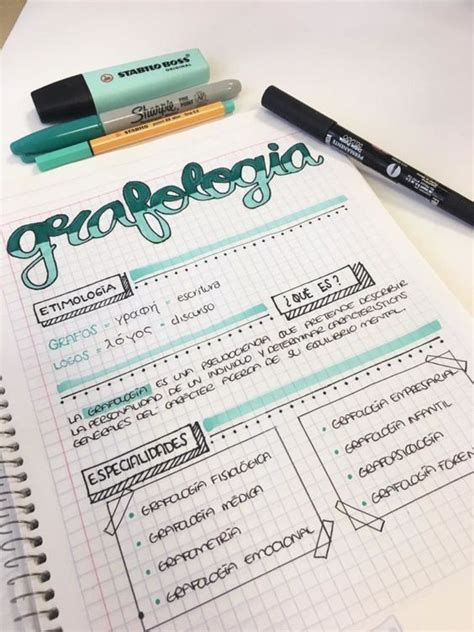 STABILO BOSS
ORIGINAL
Sharpie
STABILO
PERMANENTE
grafologia
ETIMOLOGÍA
GRAFOS = γραφή = escritura
LOGOS = λόγος = discurso
¿QUÉ ES?
LA GRAFOLOGÍA ES UNA PSEUDOCIENCIA QUE PRETENDE DESCRIBIR
LA PERSONALIDAD DE UN INDIVIDUO Y DETERMINAR CARACTERÍSTICAS
GENERALES DEL CARÁCTER ACERCA DE SU EQUILIBRIO MENTAL.
ESPECIALIDADES
• GRAFOLOGÍA FISIOLÓGICA
• GRAFOLOGÍA MÉDICA
• GRAFOMETRÍA
• GRAFOLOGÍA EMOCIONAL
• GRAFOLOGÍA EMPRESARIAL
• GRAFOLOGÍA INFANTIL
• GRAFOPSICOLOGÍA
• GRAFOLOGÍA FOREN